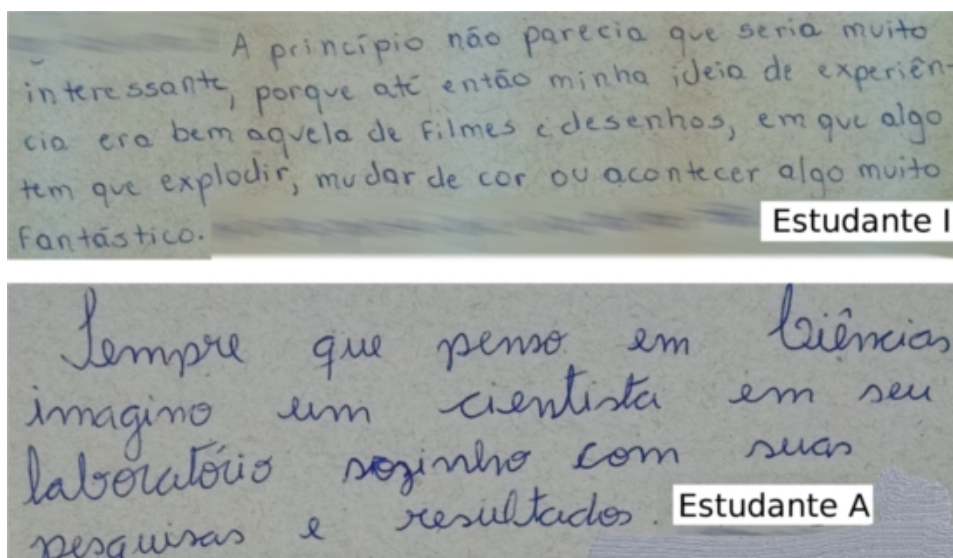 A princípio não parecia que seria muito
interessante, porque até então minha ideia de experiên-
cia era bem aquela de filmes e desenhos, em que algo
tem que explodir, mudar de cor ou acontecer algo muito
fantástico.
Estudante I
Sempre que penso em Ciências
imagino um cientista em seu
laboratório sozinho com suas
pesquisas e resultados.
Estudante A